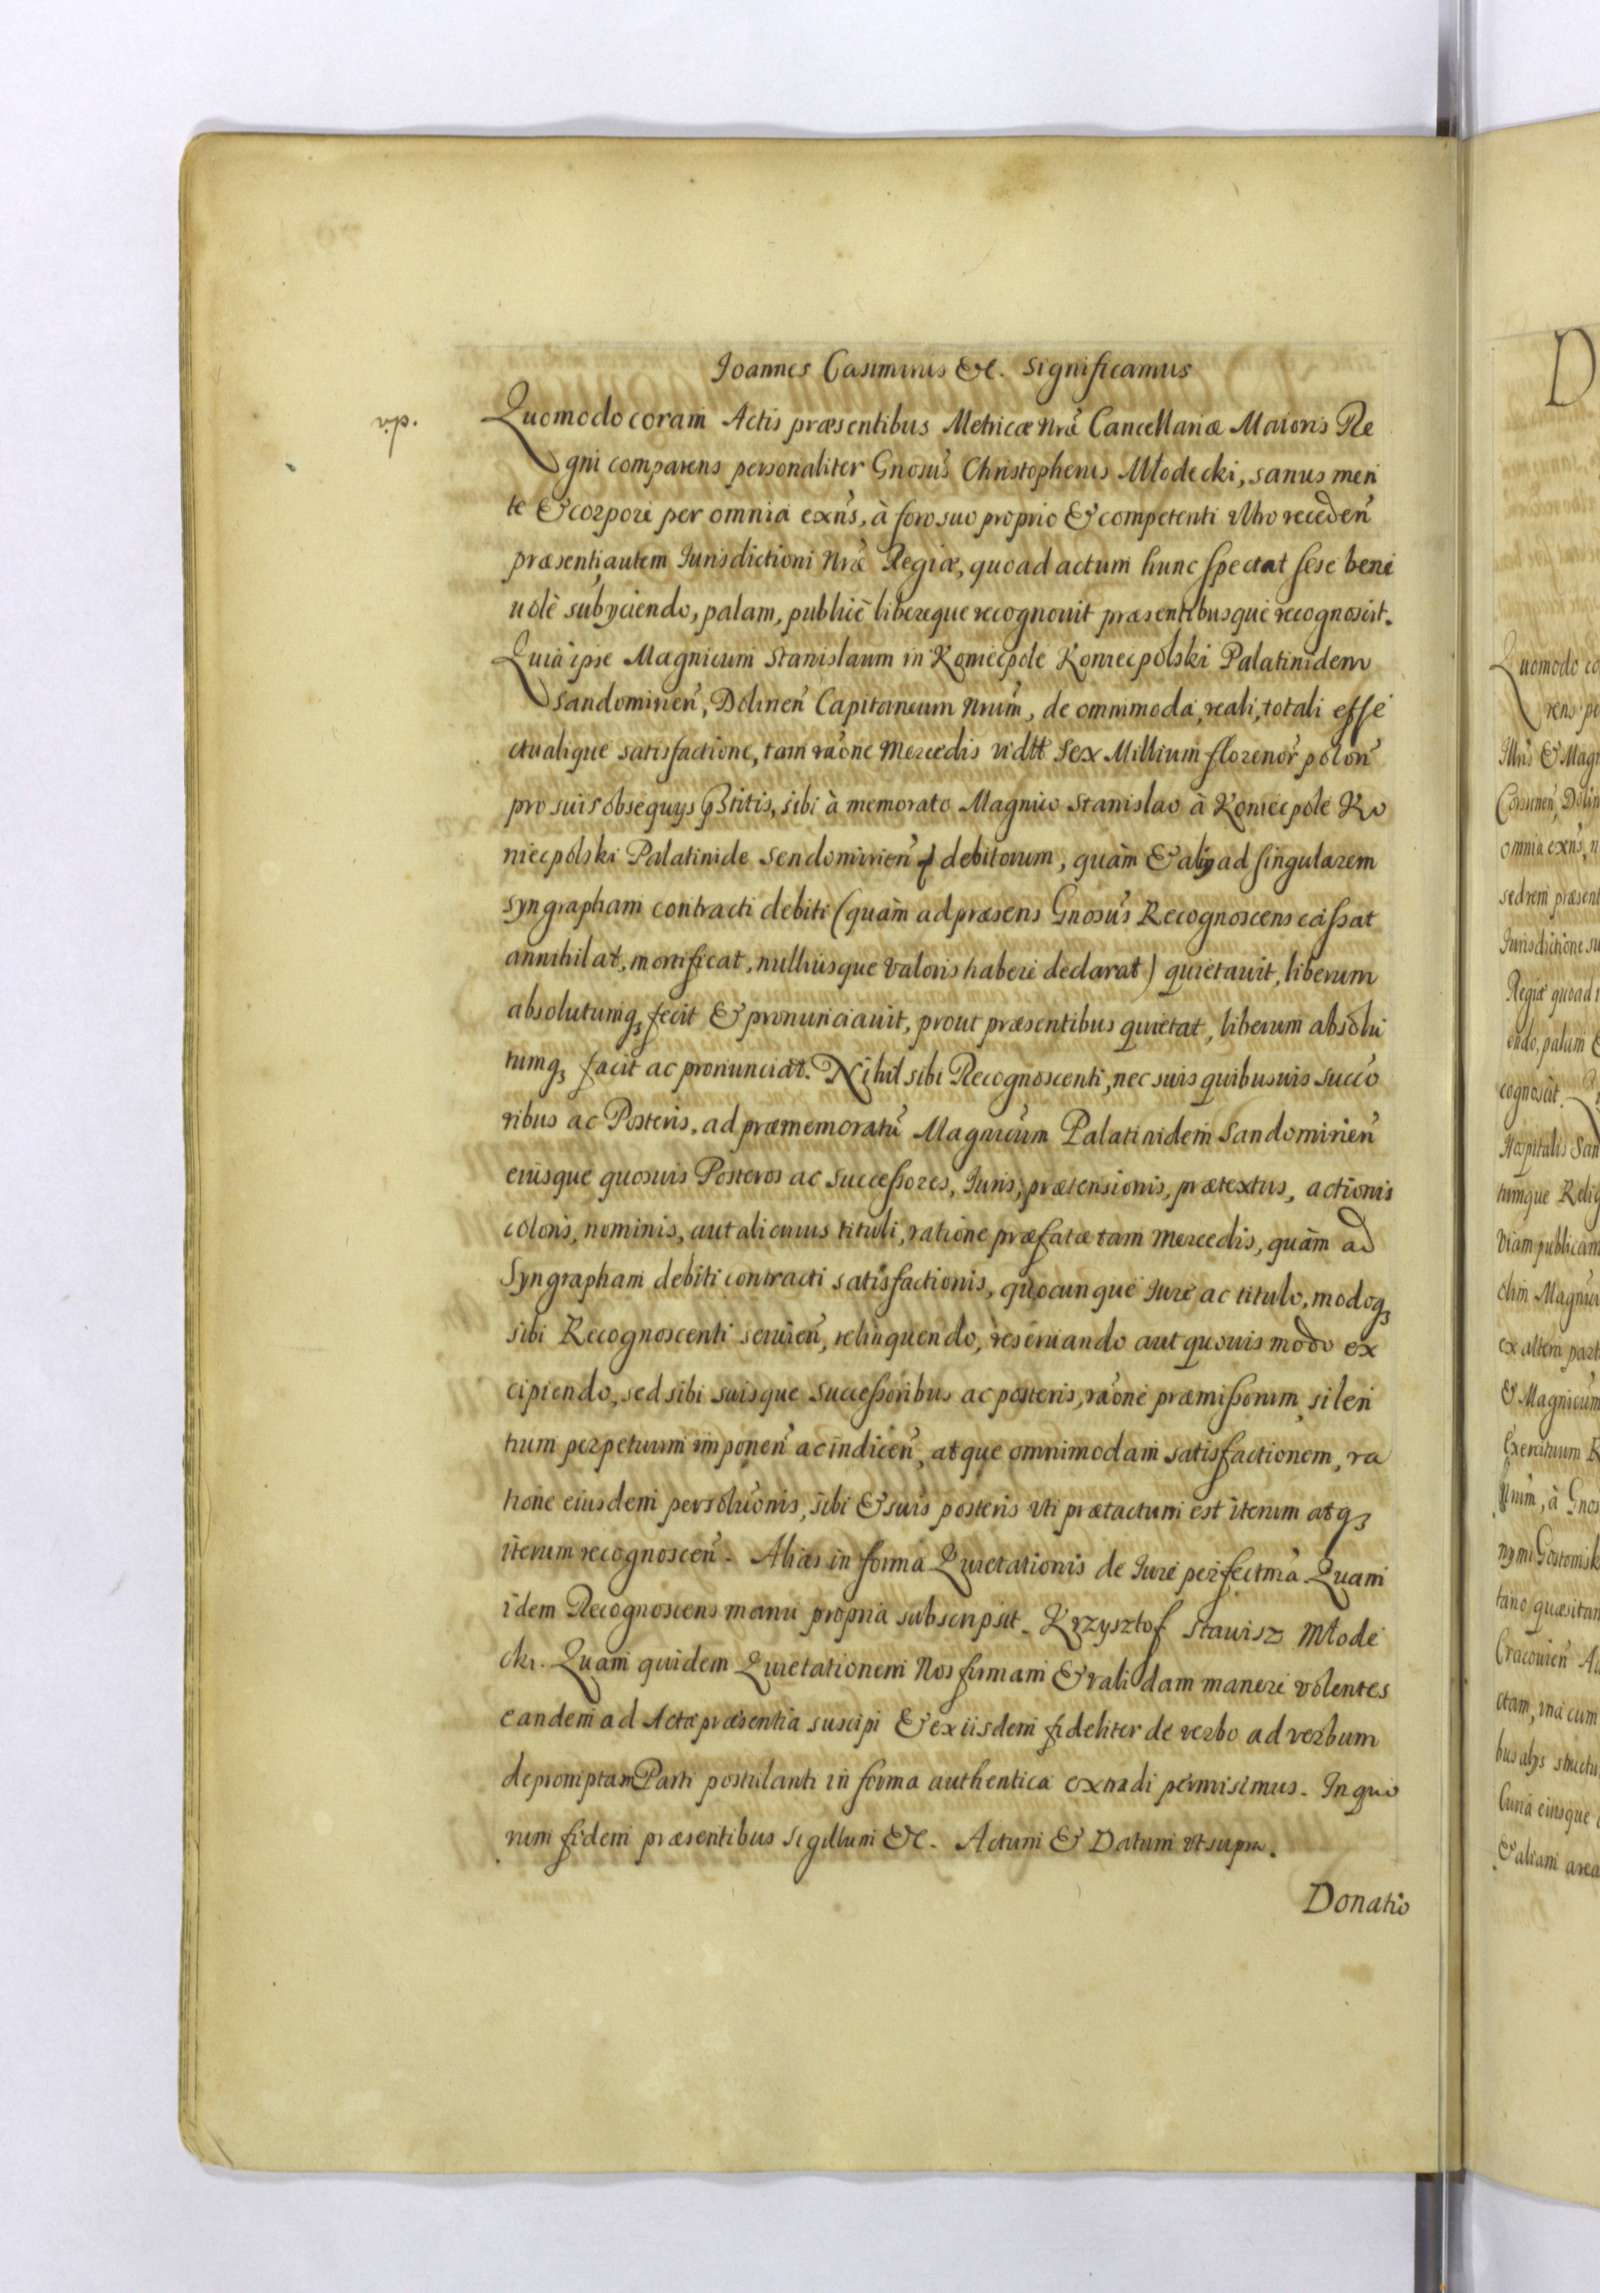 Joannes Casimirus &c. significamus
Quomodo coram Actis præsentibus Metricæ Nrã Cancellariæ Maioris Re
gni comparens personaliter Gnosus Christopherus Młodecki, sanus men
te & corpore per omnia exñs, à foro suo proprio & competenti Vltro receden̄
præsenti autem Jurisdictioni Nrã Regiæ, quoad actum hunc spectat sese bene
uolè subyciendo, palam, publicè libereque recognouit præsentibusque recognoscit.
Quià ipse Magnicum Stanislaum in Koniecpole Koniecpolski Palatinidem
Sandomirien̄, Dolinen̄ Capitaneum Nrum, de omnimoda, reali, totali effe
ctualique satisfactione, tam rãone Mercedis vidtt Sex Millium florenor̃ polon̄
pro suis obsequys pr̃stitis, sibi à memorato Magnico Stanislao à Koniecpole Ko
niecpolski Palatinide Sendomirien̄ debitorum, quàm & aly ad singularem
syngrapham contracti debiti (quàm ad præsens Gnosus Recognoscens cassat
annihilat, mortificat, nulliusque valoris habere declarat) quietauit, liberum
absolutumq; fecit & pronunciauit, prout præsentibus quietat, liberum absolu
tumq; facit ac pronunciat. Nihil sibi Recognoscenti, nec suis quibusuis succo
ribus ac Posteris, ad præmemoratū Magnicum Palatinidem Sandomirien̄
eiusque quosuis Posteros ac successores, Juris, prætensionis, prætextus, actionis
coloris, nominis, aut alicuius tituli, ratione præfatæ tam Mercedis, quàm ad
Syngrapham debiti contracti satisfactionis, quocunque Jure ac titulo, modoq;
sibi Recognoscenti seruien̄, relinquendo, reseruando aut quouis modo ex
cipiendo, sed sibi suisque Successoribus ac posteris, rãone præmissorum, silen
tium perpetuum imponen̄ ac indicen̄, atque omnimodam satisfactionem, ra
tione eiusdem persolũonis, sibi & suis posteris vti prætactum est iterum atq;
iterum recognoscen̄. Alias in forma Quietationis de Jure perfectmã Quam
idem Recognoscens manu propria subscripsit. Krzysztof Stawisz Młode
cki. Quam quidem Quietationem Nos firmam & validam manere volentes
eandem ad Acta præsentia suscipi & ex iisdem fideliter de verbo ad verbum
depromptam Parti postulanti in forma authentica extradi permisimus. In quo
rum fidem præsentibus sigillum &c. Actum & Datum vt supra.
Donatio